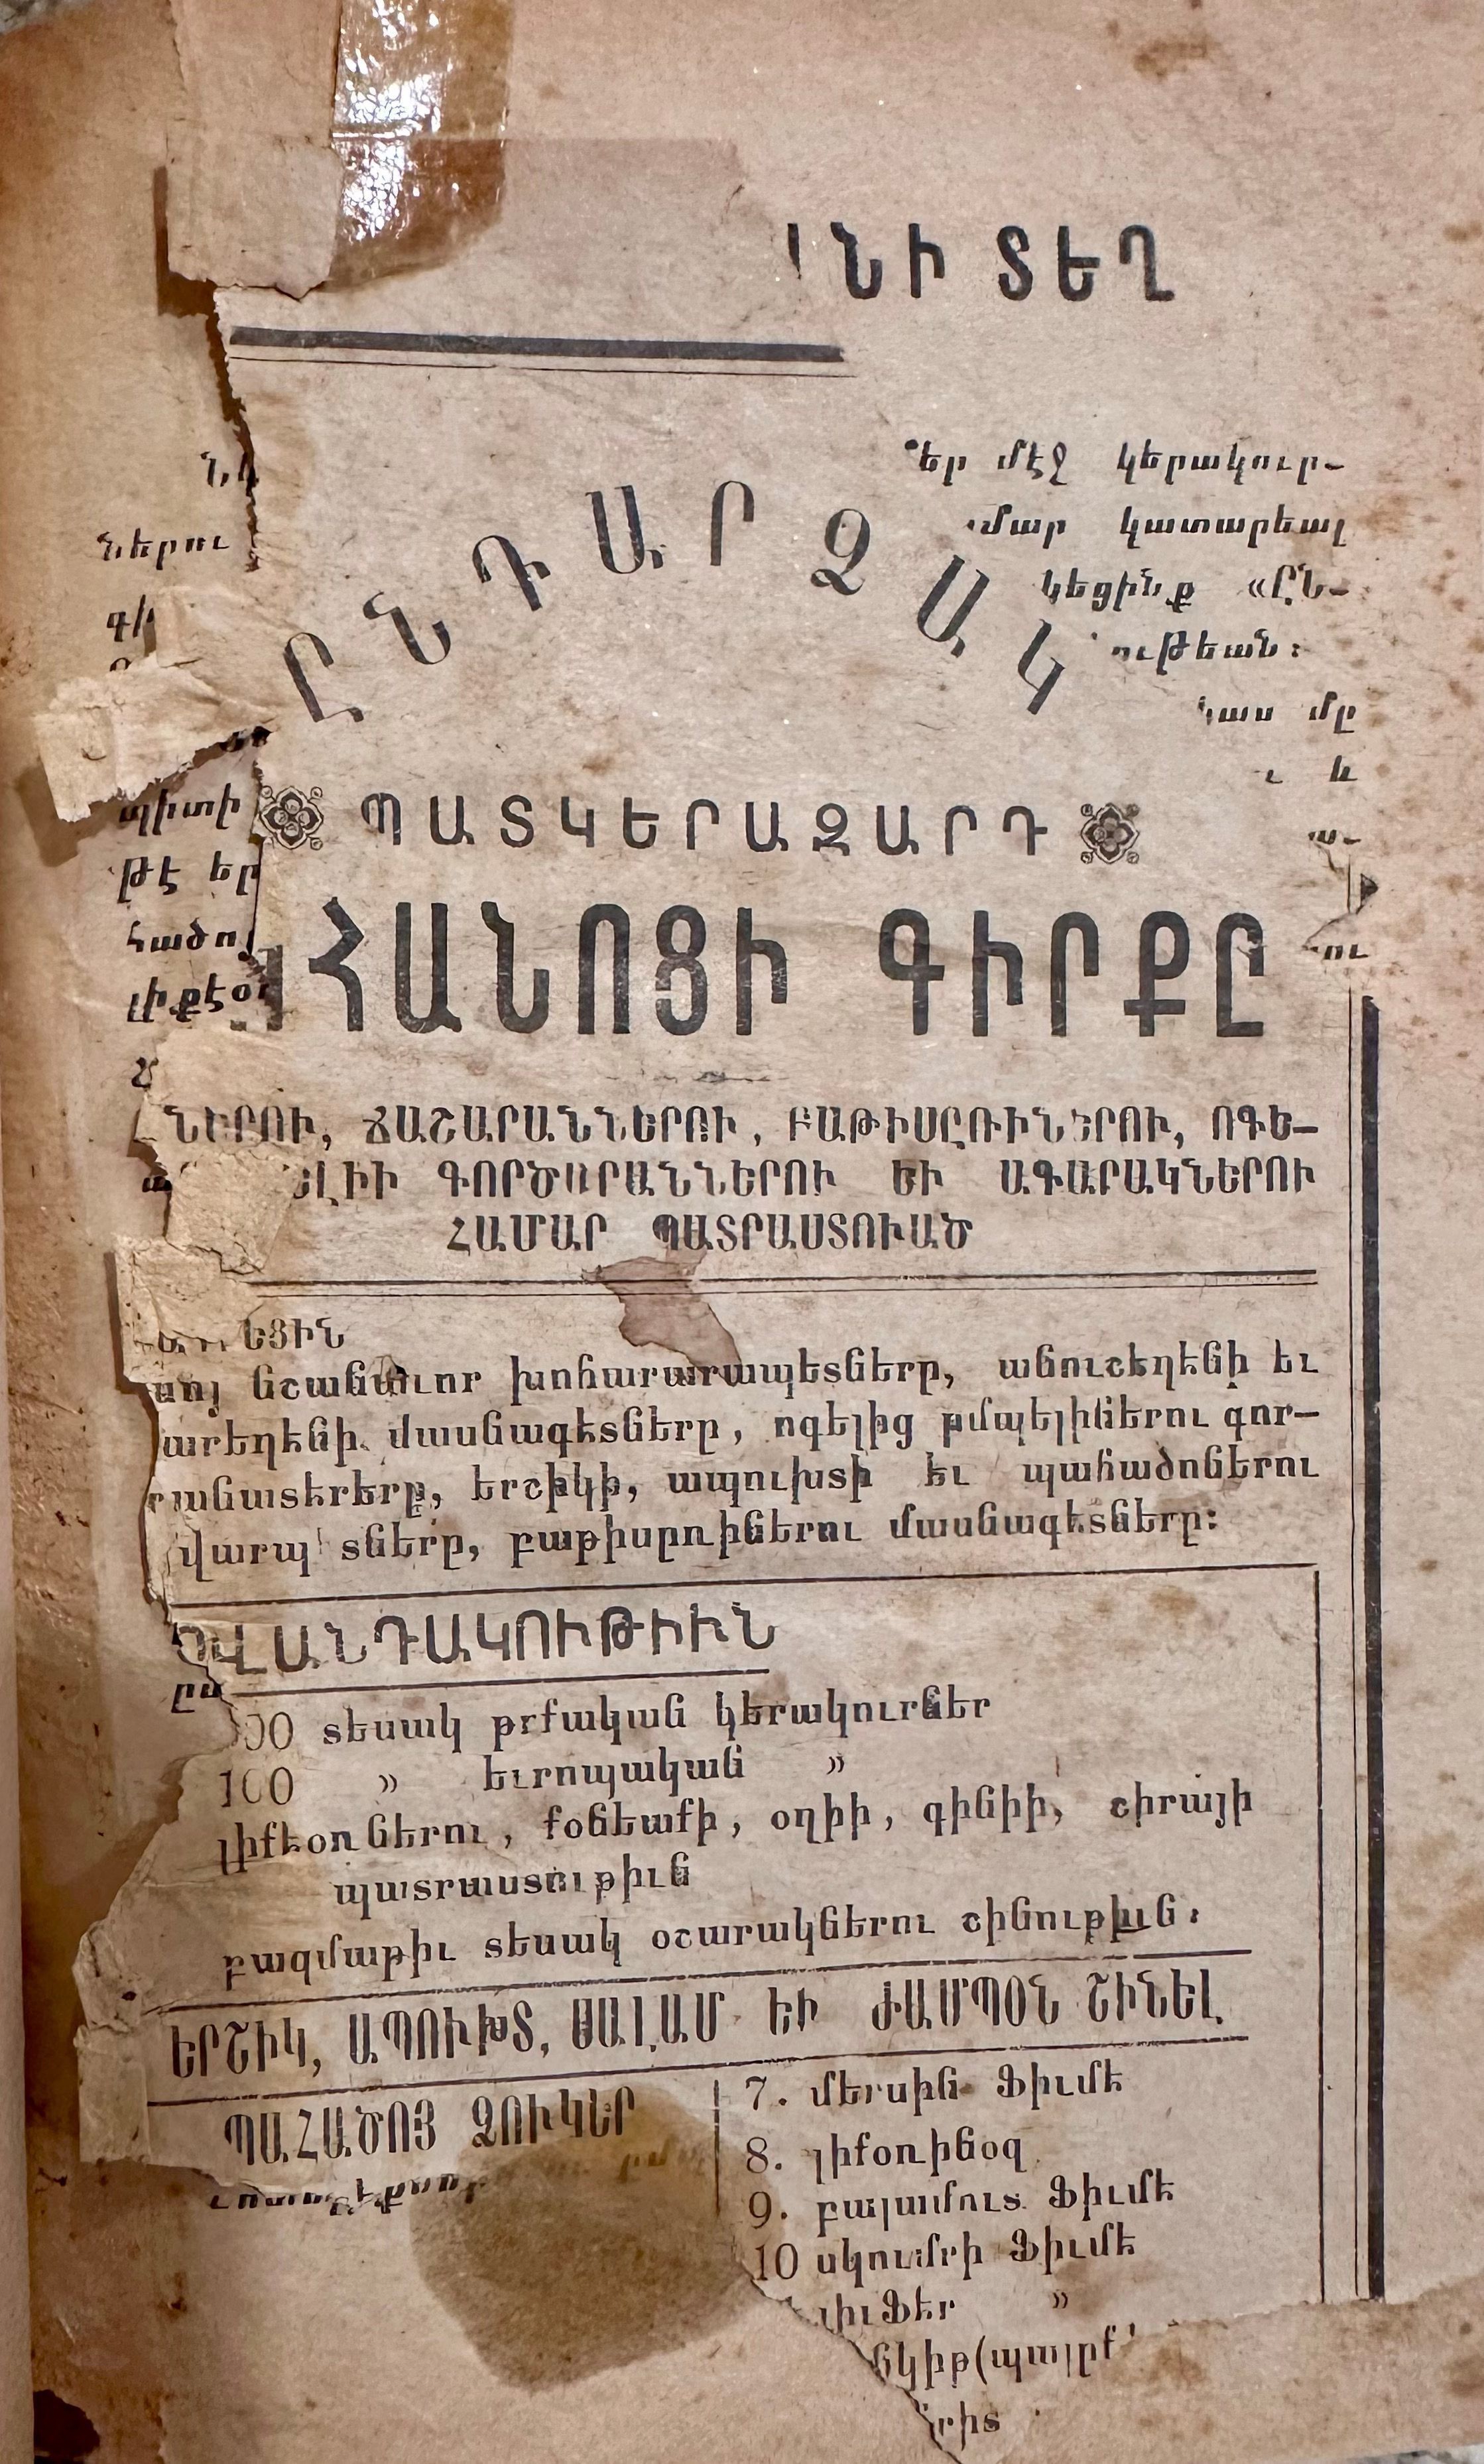 ՆԻ ՏԵՂ
եր մէջ կերակուր-
մար կատարեալ
ներու
կեցինք «Ըն-
ութեան։
ԸՆԴԱՐՁԱԿ
կաս մը
և
պիտի
ՊԱՏԿԵՐԱԶԱՐԴ
թէ եր
հածոյ
ՀԱՆՈՑԻ ԳԻՐՔԸ
ու
լիքէօ
ՆԵՐՈՒ, ՃԱՇԱՐԱՆՆԵՐՈՒ, ԲԱԹԻՍԸՌԻՆԵՐՈՒ, ՈԳԵ-
ԵԼԻԻ ԳՈՐԾԱՐԱՆՆԵՐՈՒ ԵՒ ԱԳԱՐԱԿՆԵՐՈՒ
ՀԱՄԱՐ ՊԱՏՐԱՍՏՈՒԱԾ
ԵՑԻՆ
նշանաւոր խոհարարապետները, անուշեղէնի եւ
արեղէնի մասնագէտները, ոգելից ըմպելիներու գոր-
անատէրերը, երշիկի, ապուխտի եւ պահածոներու
վարպ տները, բաթիսըռիներու մասնագէտները։
ՈՎԱՆԴԱԿՈՒԹԻՒՆ
00 տեսակ թրքական կերակուրներ
100 » եւրոպական »
լիքէօռներու, քօնեաքի, օղիի, գինիի, շիրայի
պատրաստութիւն
բազմաթիւ տեսակ օշարակներու շինութիւն։
ԵՐՇԻԿ, ԱՊՈՒԽՏ, ՍԱԼԱՄ ԵՒ ԺԱՄՊՕՆ ՇԻՆԵԼ
ՊԱՀԱԾՈՅ ՁՈՒԿԵՐ
7. մերսին Ֆիւմէ
8. լիքօռինօզ
9. բալամուտ Ֆիւմէ
10 սկումրի Ֆիւմէ
լիւֆէր »
նկիթ(պալըք
րիտ